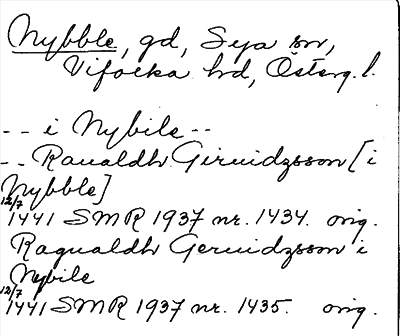 Nybble, gd, Sya sn,
Vifolka hd, Österg. l.
-- i Nybile --
-- Raualdh Giruidzsson [i
Nybble]
12/7
1441 SMR 1937 nr. 1434. orig.
Ragualdh Geruidzsson i
Nybile
12/7
1441 SMR 1937 nr. 1435. orig.